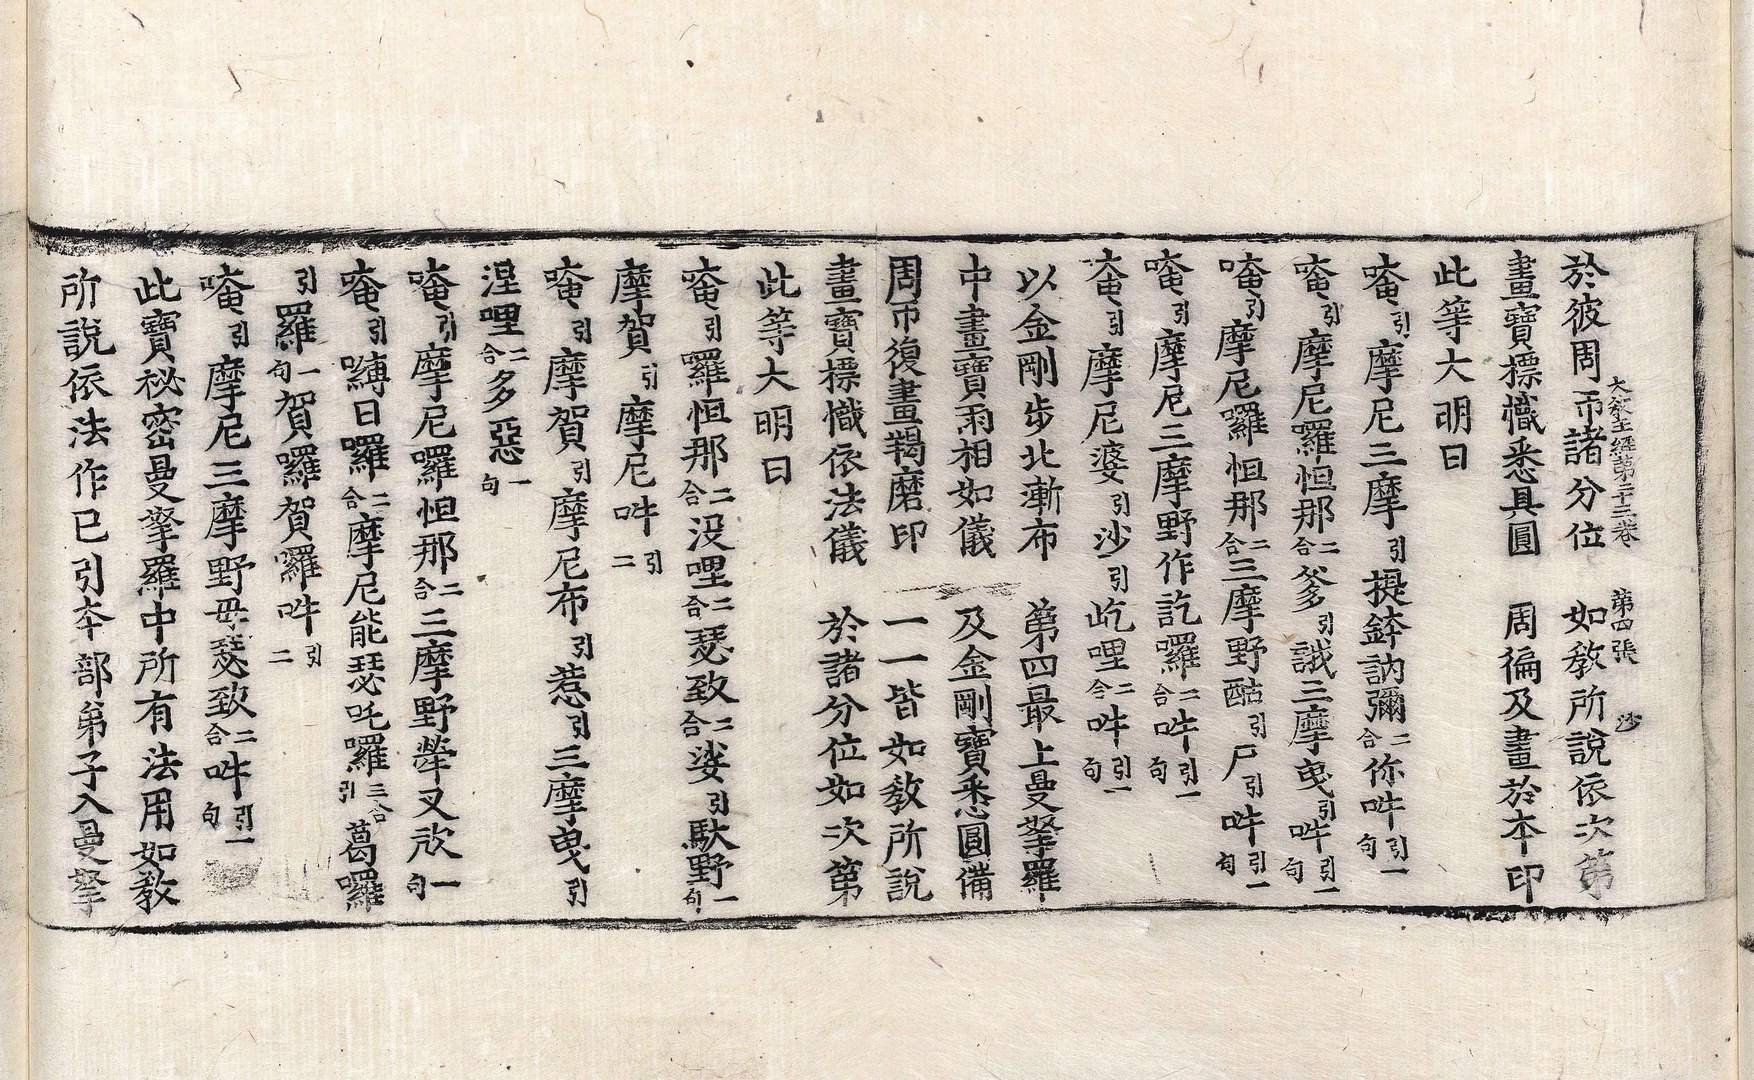 大敎王經第二十三卷 第四張 沙
於彼周帀諸分位 如敎所說依次第
畫寶摽幟悉具圓 周徧及畫於本印
此等大明曰
唵引摩尼三摩引提鉢訥彌二合你吽引一句
唵引摩尼囉怛那二合爹引誐三摩曳引吽引一句
唵引摩尼囉怛那二合三摩野酤引尸引吽引一句
唵引摩尼三摩野作訖囉二合吽引一句
唵引摩尼婆引沙引屹哩二合吽引一句
以金剛步北漸布 第四最上曼拏羅
中畫寶雨相如儀 及金剛寶悉圓備
周帀復畫羯磨印 一一皆如敎所說
畫寶摽幟依法儀 於諸分位如次第
此等大明曰
唵引囉怛那二合沒哩二合瑟致二合娑引馱野一句
摩賀引摩尼吽引二
唵引摩賀引摩尼布引惹引三摩曳引
涅哩二合多惡一句
唵引摩尼囉怛那二合三摩野犖叉㰤一句
唵引嚩日囉二合摩尼能瑟吒囉三合引葛囉
引羅一句賀囉賀囉吽引二
唵引摩尼三摩野毋瑟致二合吽引一句
此寶祕密曼拏羅中所有法用如敎
所說依法作已引本部弟子入曼拏